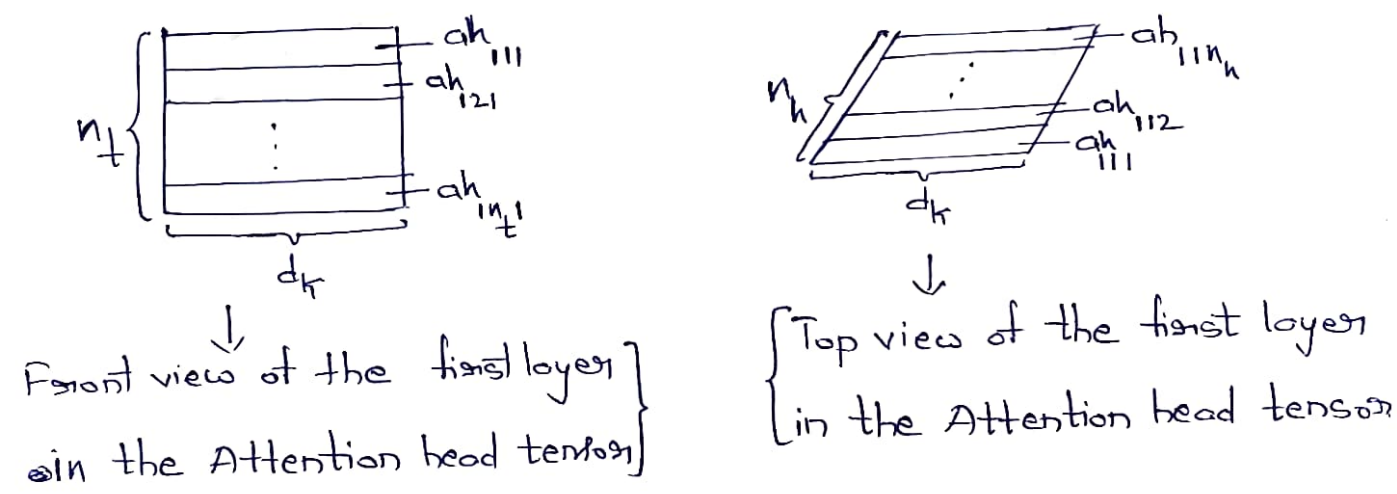 ah₁₁₁
ah₁₂₁
n_t
ah₁ₙ_t₁
d_k
Front view of the first layer
in the Attention head tensor
ah₁₁ₙ_h
n_h
ah₁₁₂
ah₁₁₁
d_k
Top view of the first layer
in the Attention head tensor